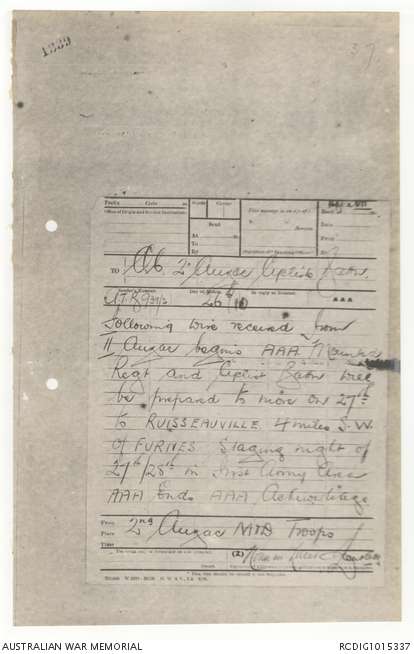 1339
37
Prefix Code m
Words Charge
Office of Origin and Service Instructions.
Sent
At m
To
By
This message is on a/c of :
Service
Date
From
By
TO 2nd Anzac Cyclist Batn
Sender's Number.
Day of Month
In reply to Number
AAA
26th
following wire received from
II Anzac begins AAA Mounted
Regt and Cyclist Batn will
be prepared to move on 27th
to RUISSEAUVILLE 4 miles S.W.
of FURNES Staging night of
27th/28th in First Army Area
AAA Ends AAA Acknowledge
From
Place
Time
2nd Anzac MTD Troops
(Z)
AUSTRALIAN WAR MEMORIAL
RCDIG1015337